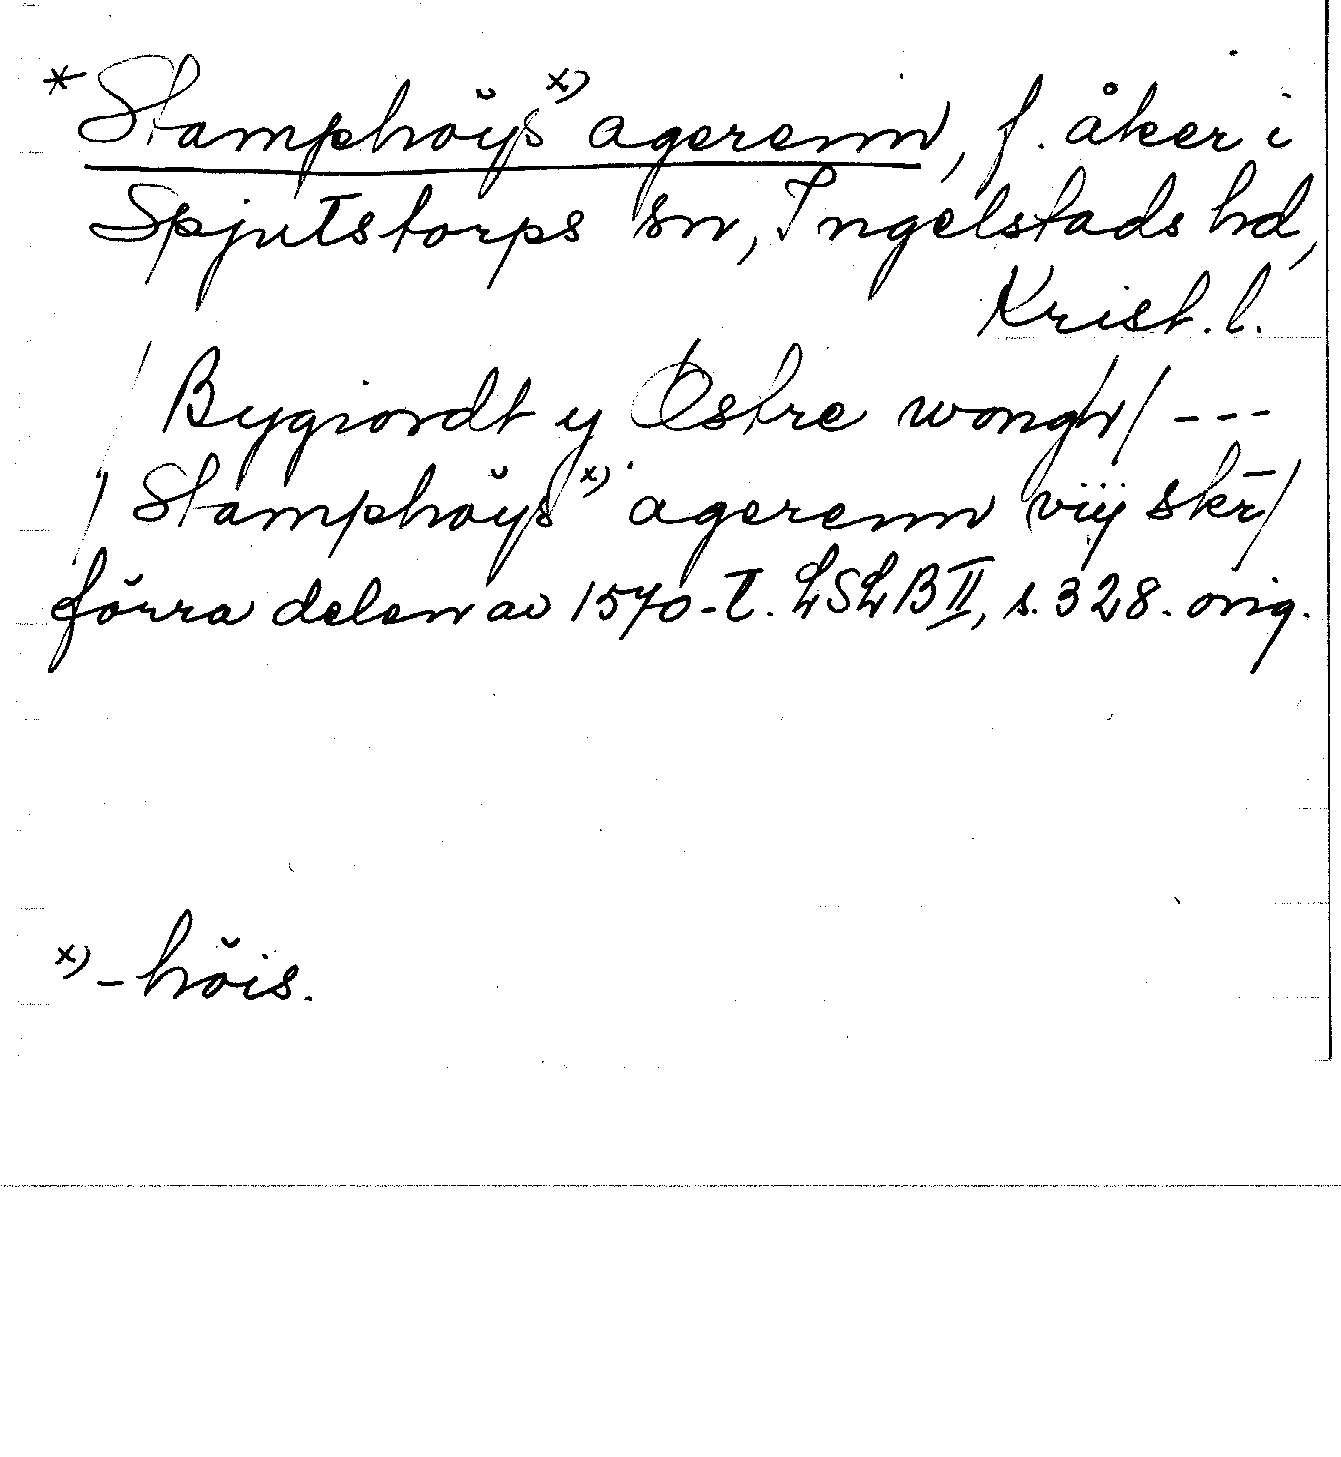 * Stamphöÿs x) agerenn, f. åker i
Spjutstorps sn, Ingelstads hd,
Krist. l.
/ Bygiordt y Østre wongh / ---
/ Stamphöÿs x) agerenn viÿ skr̄ /
förra delen av 1570-t. LSLB II, s. 328. orig.
x) -höis.